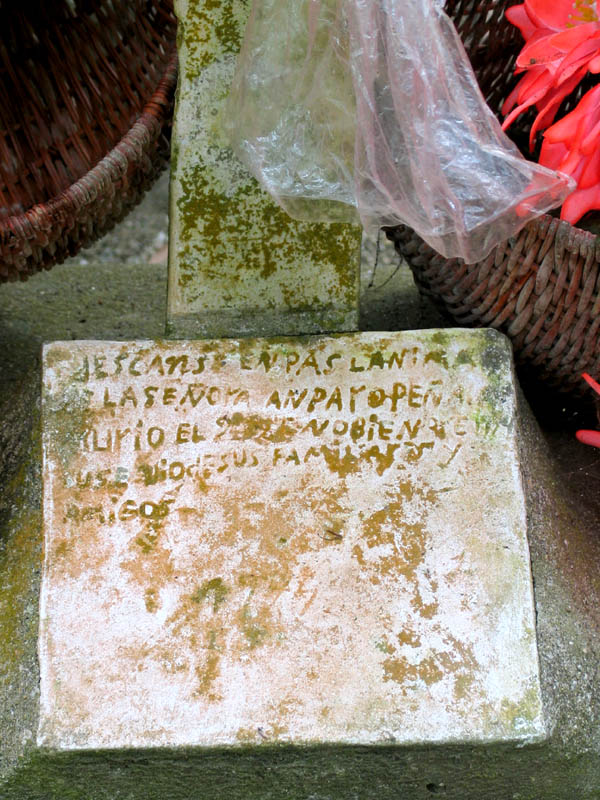 DESCANSE EN PAS LANIMA
DE LA SEÑORA ANPARO PEÑA
MURIO EL DE NOBIENBRE
RECUERDO DE SUS FAMILIARES Y
AMIGOS